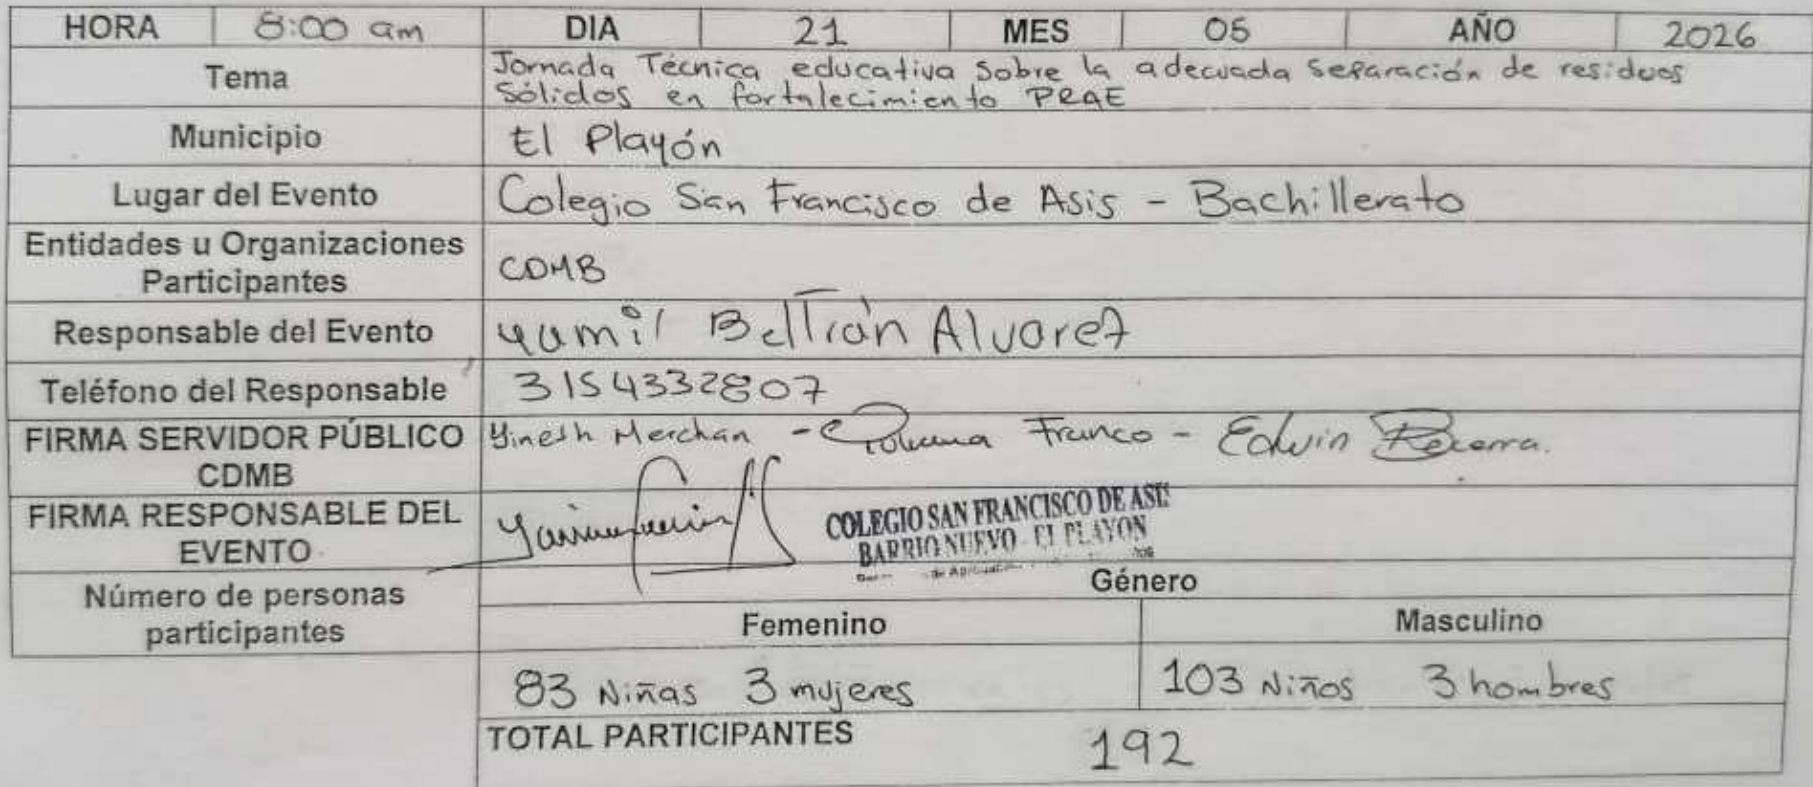 HORA 8:00 am DIA 21 MES 05 AÑO 2026
Tema Jornada Técnica educativa sobre la adecuada separación de residuos
sólidos en fortalecimiento PRAE
Municipio El Playón
Lugar del Evento Colegio San Francisco de Asis - Bachillerato
Entidades u Organizaciones
Participantes CDMB
Responsable del Evento Yamil Beltrán Alvarez
Teléfono del Responsable 3154332807
FIRMA SERVIDOR PÚBLICO
CDMB Yinesh Merchan - Franco - Edwin Becerra.
FIRMA RESPONSABLE DEL
EVENTO
COLEGIO SAN FRANCISCO DE ASIS
BARRIO NUEVO - EL PLAYON
Número de personas
participantes
Género
Femenino Masculino
83 Niñas 3 mujeres 103 Niños 3 hombres
TOTAL PARTICIPANTES 192